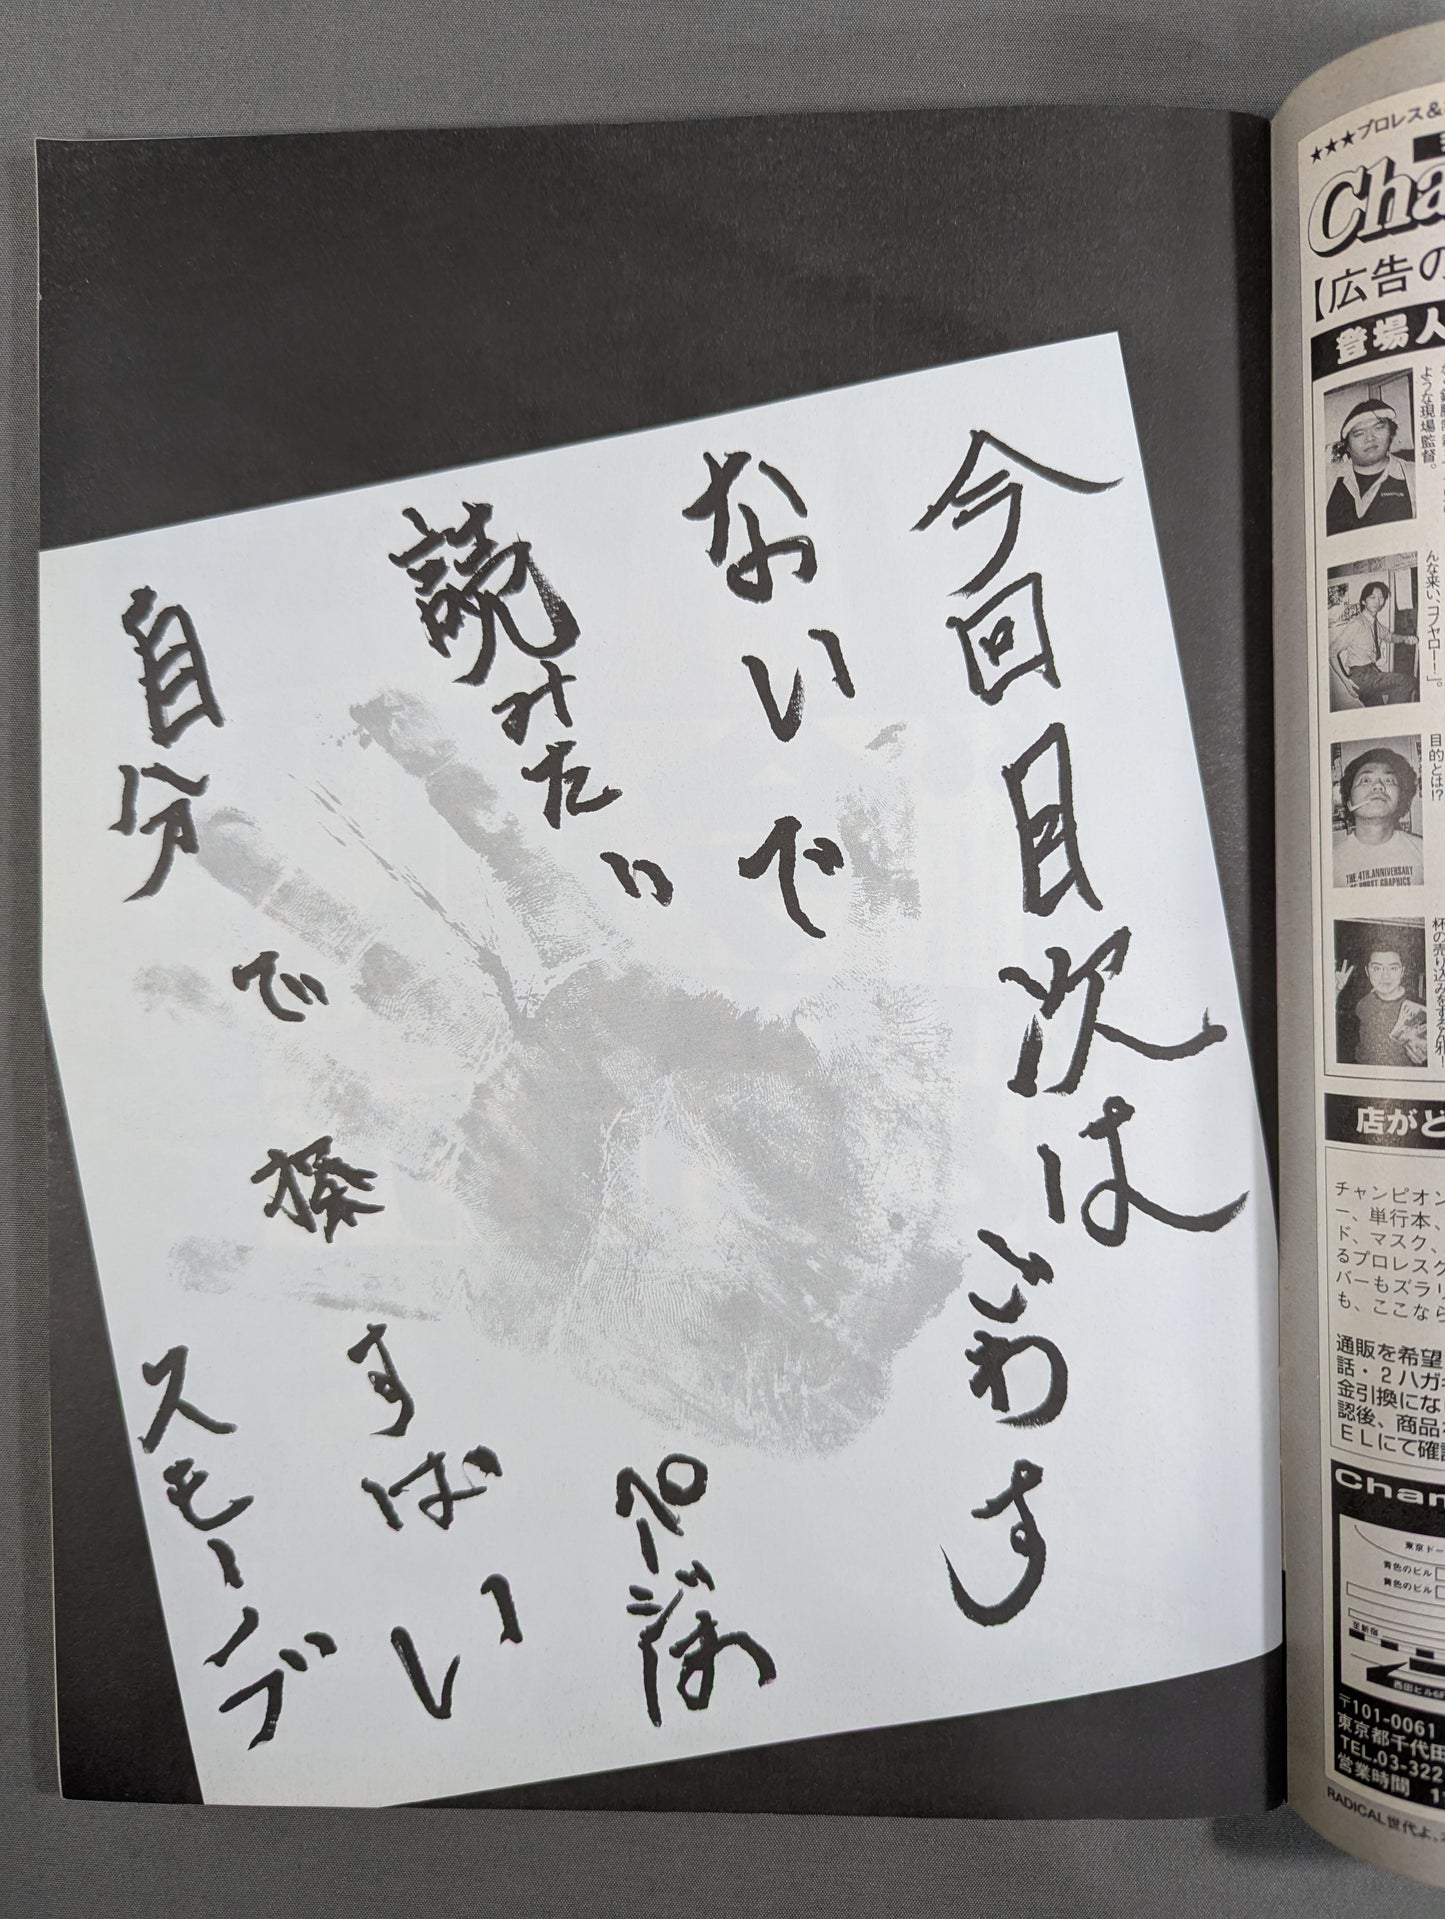 今回目次はごわす
ないで
読みたい
ページは
自分で探すばい
スモーノブ
★★★プロレス＆
Cha
【広告の
登場人
ような現場監督。
んな来い、コノヤロー！」。
目的とは!?
THE 4TH.ANNIVERSARY
店がど
チャンピオン
ー、単行本、
ド、マスク、
るプロレスグ
バーもズラリ
も、ここなら
通販を希望
話・２ハガキ
金引換にな
認後、商品を
ＥＬにて確認
Cham
東京ドー
青色のビル
黄色のビル
至新宿
西田ビル6F
〒101-0061
東京都千代田
TEL.03-322
営業時間 11
RADICAL世代よ、